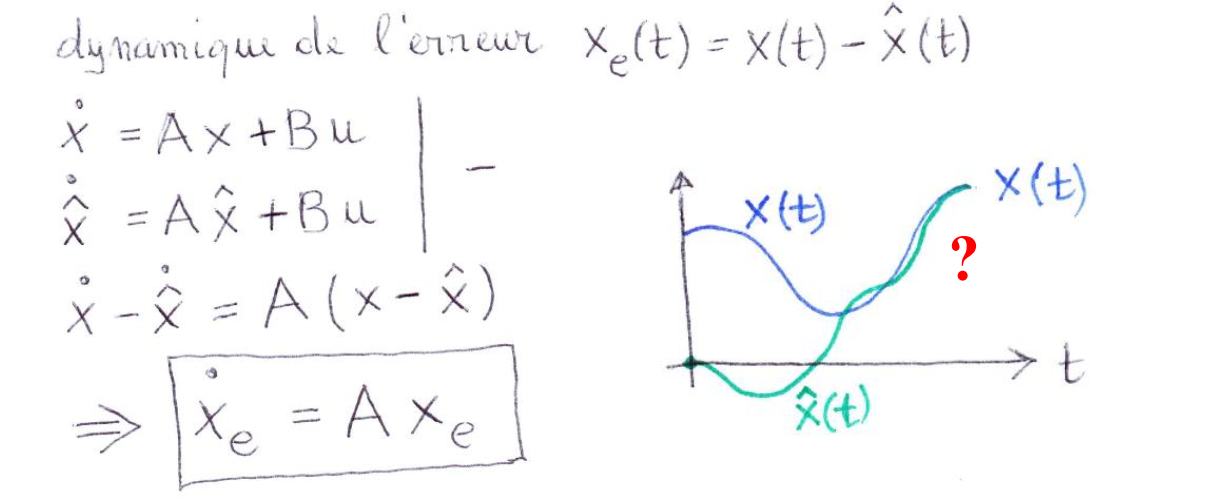 dynamique de l'erreur xₑ(t) = x(t) − x̂(t)
ẋ = Ax + Bu
−
x̂̇ = Ax̂ + Bu
ẋ − x̂̇ = A(x − x̂)
⇒ ẋₑ = A xₑ
x(t)
x(t)
?
t
x̂(t)